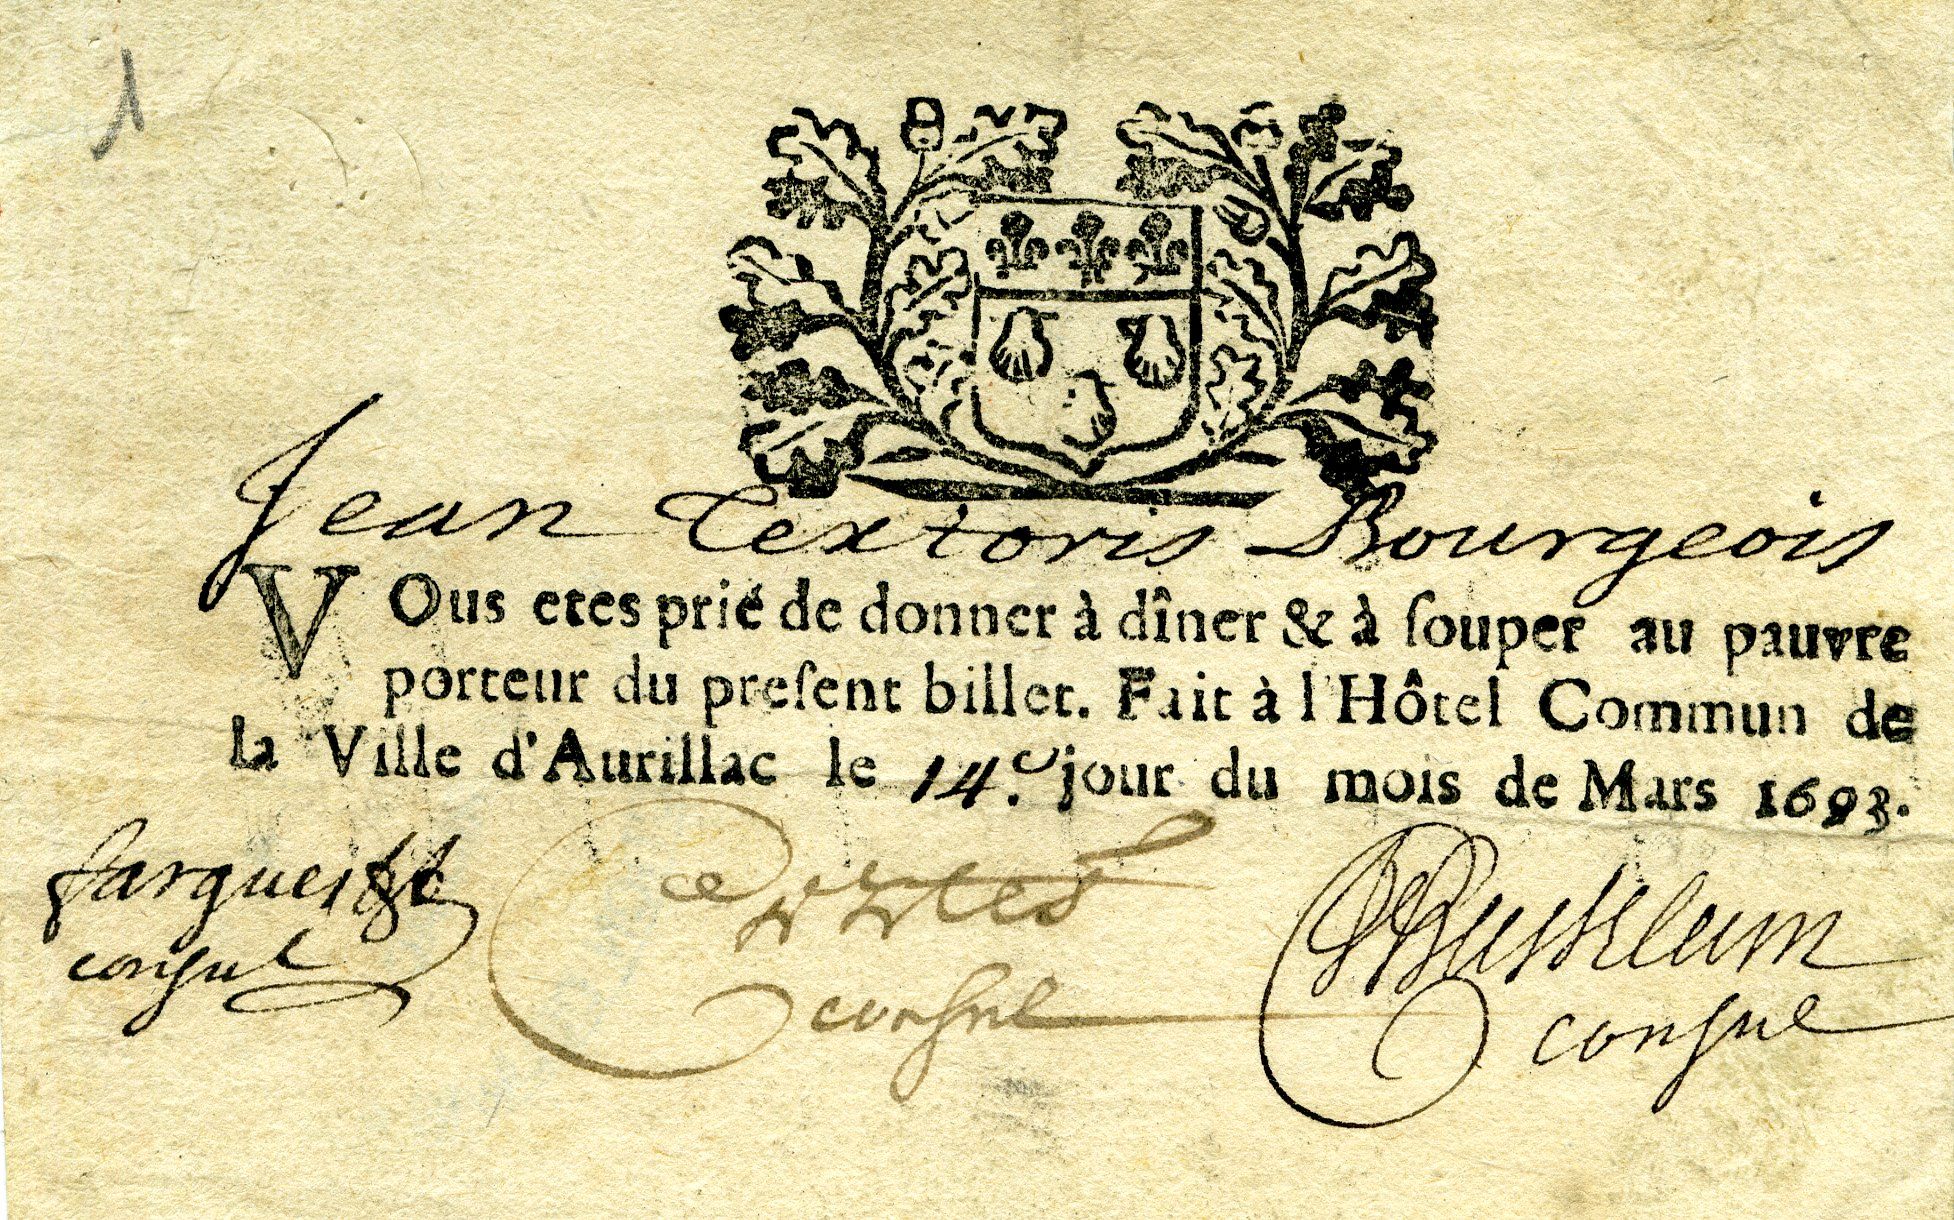 1
Jean Textoris Bourgeois
VOus etes prié de donner à dîner & à ſouper au pauvre
porteur du preſent billet. Fait à l'Hôtel Commun de
la Ville d'Aurillac le 14.e jour du mois de Mars 1693.
consul
consul
consul